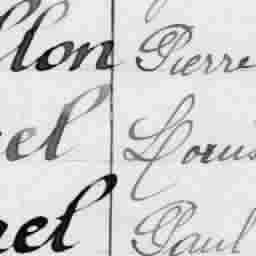 llon Pierre
el Louis
rel Paul